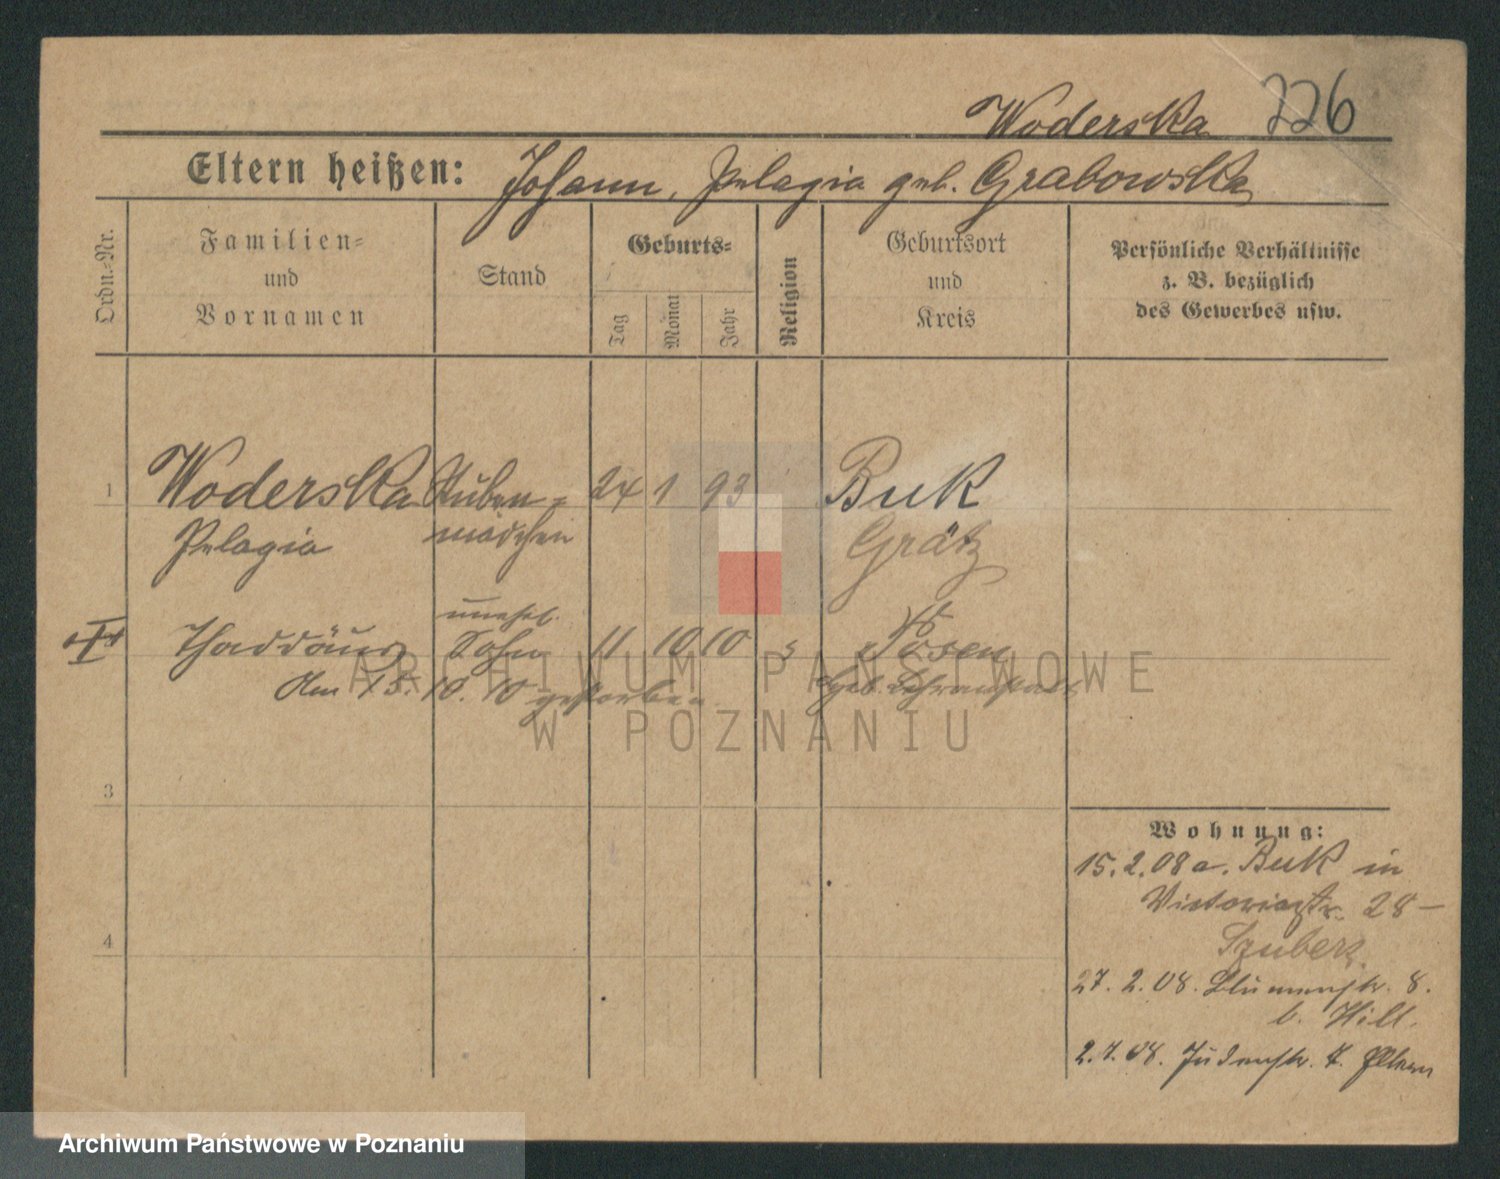 Woderska 226
Eltern heißen: Johann, Pelagia geb. Grabowska
Ordn.-Nr.
Familien-
und
Vornamen
Stand
Geburts-
Tag
Monat
Jahr
Religion
Geburtsort
und
Kreis
Persönliche Verhältnisse
z. B. bezüglich
des Gewerbes usw.
1 Woderska Stuben- 24 1 93 Buk
Pelagia mädchen Grätz
unehl.
Thaddäus Sohn 11 10 10 Posen
Am 13. 10. 10 gestorben
Geb.
3
4
Wohnung:
15.2.08 a. Buk in
Victoriastr. 28 –
27. 2. 08. Blumenstr. 8.
b. Hill.
2.7.08. Judenstr. 7. Eltern
ARCHIWUM PAŃSTWOWE
W POZNANIU
Archiwum Państwowe w Poznaniu